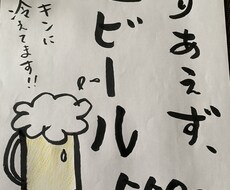 りあえず、
ビール
キンに
冷えてます!!